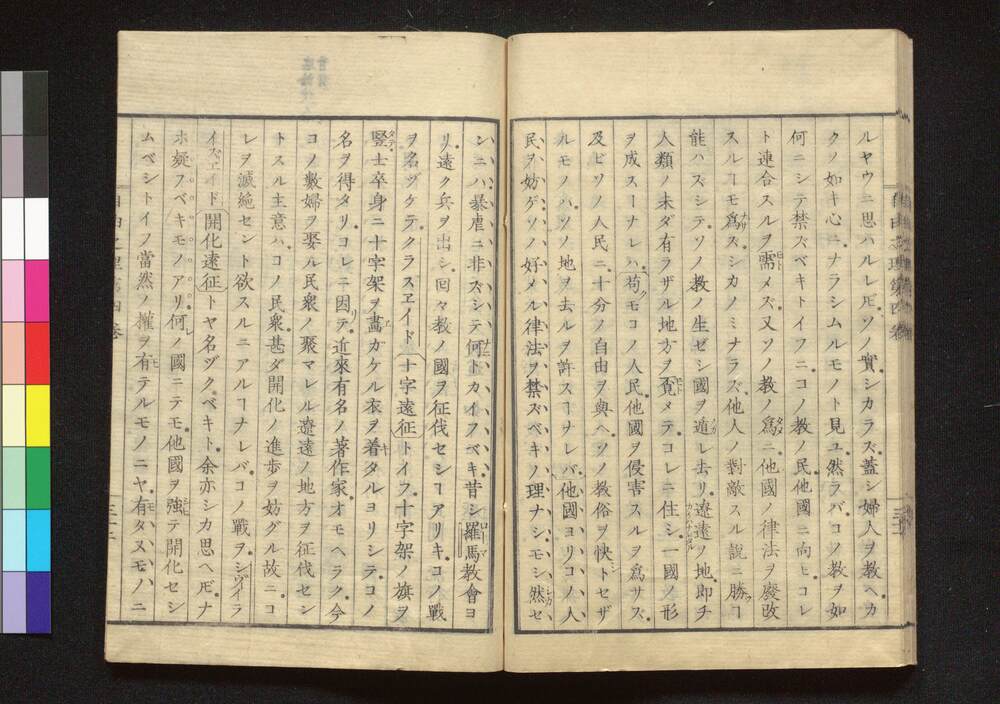 ルヤウニ思ハルレ𪜈ソノ實シカラズ蓋シ婦人ヲ教ヘカ
クノ如キ心ニナラシムルモノト見ユ然ラバコノ教ヲ如
何ニシテ禁ズベキトイフニコノ教ノ民他國ニ向ヒコレ
ト連合スルヲ需メズ又ソノ教ノ爲ニ他國ノ律法ヲ廢改
スルヿモ爲ズシカノミナラズ他人ノ對敵スル説ニ勝ヿ
能ハズシテソノ教ノ生ゼシ國ヲ遁レ去リ遼遠ノ地即チ
人類ノ未ダ有ラザル地方ヲ覓メテコレニ住シ一國ノ形
ヲ成スヿナレハ苟モコノ人民他國ヲ侵害スルヲ爲サズ
及ビソノ人民ニ十分ノ自由ヲ與ヘソノ教俗ヲ快トセザ
ルモノハソノ地ヲ去ルヲ許スヿナレバ他國ヨリコノ人
民ヲ妨ゲソノ好メル律法ヲ禁ズベキノ理ナシモシ然セ
ンニハ暴虐ニ非ズシテ何トカイフベキ昔シ羅馬教會ヨ
リ遠ク兵ヲ出シ回々教ノ國ヲ征伐セシヿアリキコノ戰
ヲ名ヅケテクラスヱイド(十字遠征)トイフ十字架ノ旗ヲ
竪士卒身ニ十字架ヲ畫カケル衣ヲ着タルヨリシテコノ
名ヲ得タリコレニ因テ近來有名ノ著作家オモヘラク今
コノ數婦ヲ娶ル民衆ノ聚マレル遼遠ノ地方ヲ征伐セシ
トスル主意ハコノ民衆甚ダ開化ノ進歩ヲ妨グル故ニコ
レヲ滅絶セント欲スルニアルヿナレバコノ戰ヲシヴィラ
イズヱイド(開化遠征)トヤ名ヅクベキト余亦シカ思ヘ𪜈ナ
ホ疑フベキモノアリ何ノ國ニテモ他國ヲ強テ開化セシ
ムベシトイフ當然ノ權ヲ有テルモノニヤ有タズモハニ